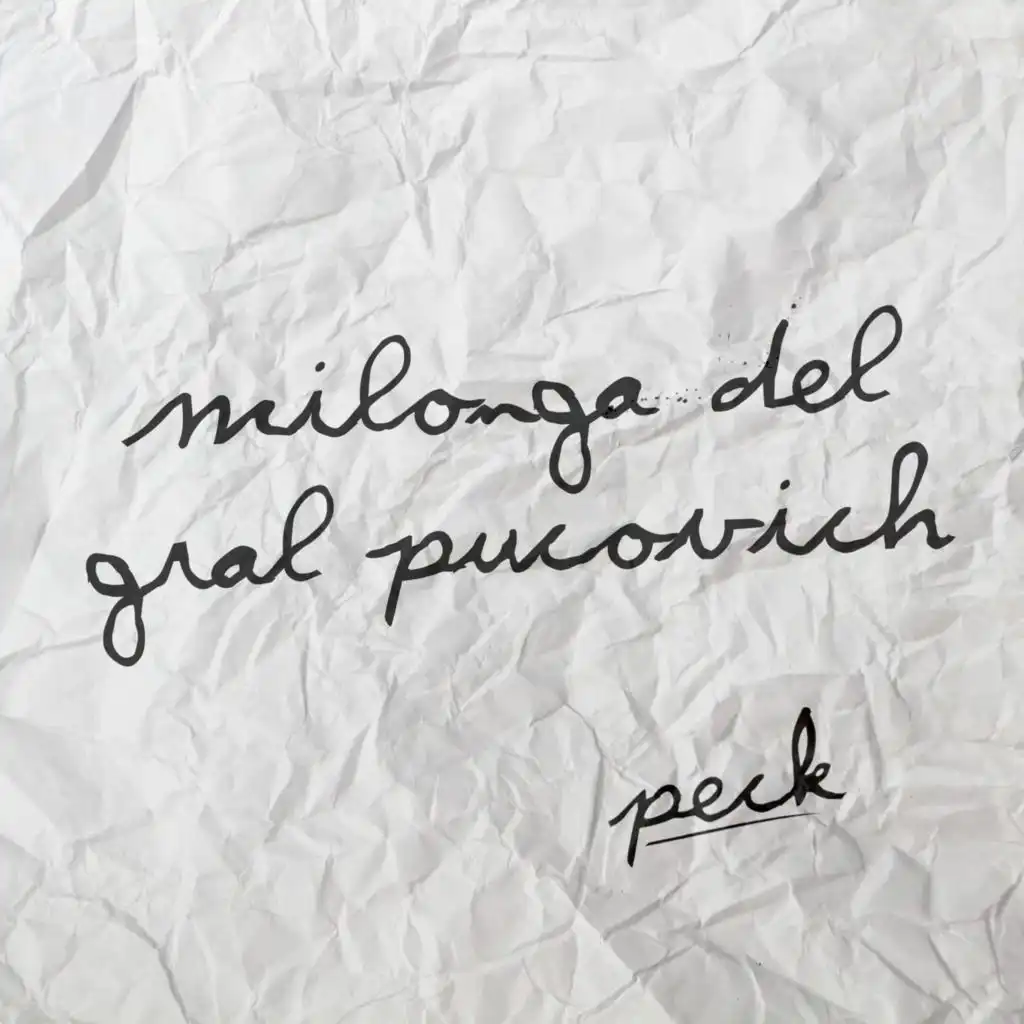 milonga del
gral pucovich
peck